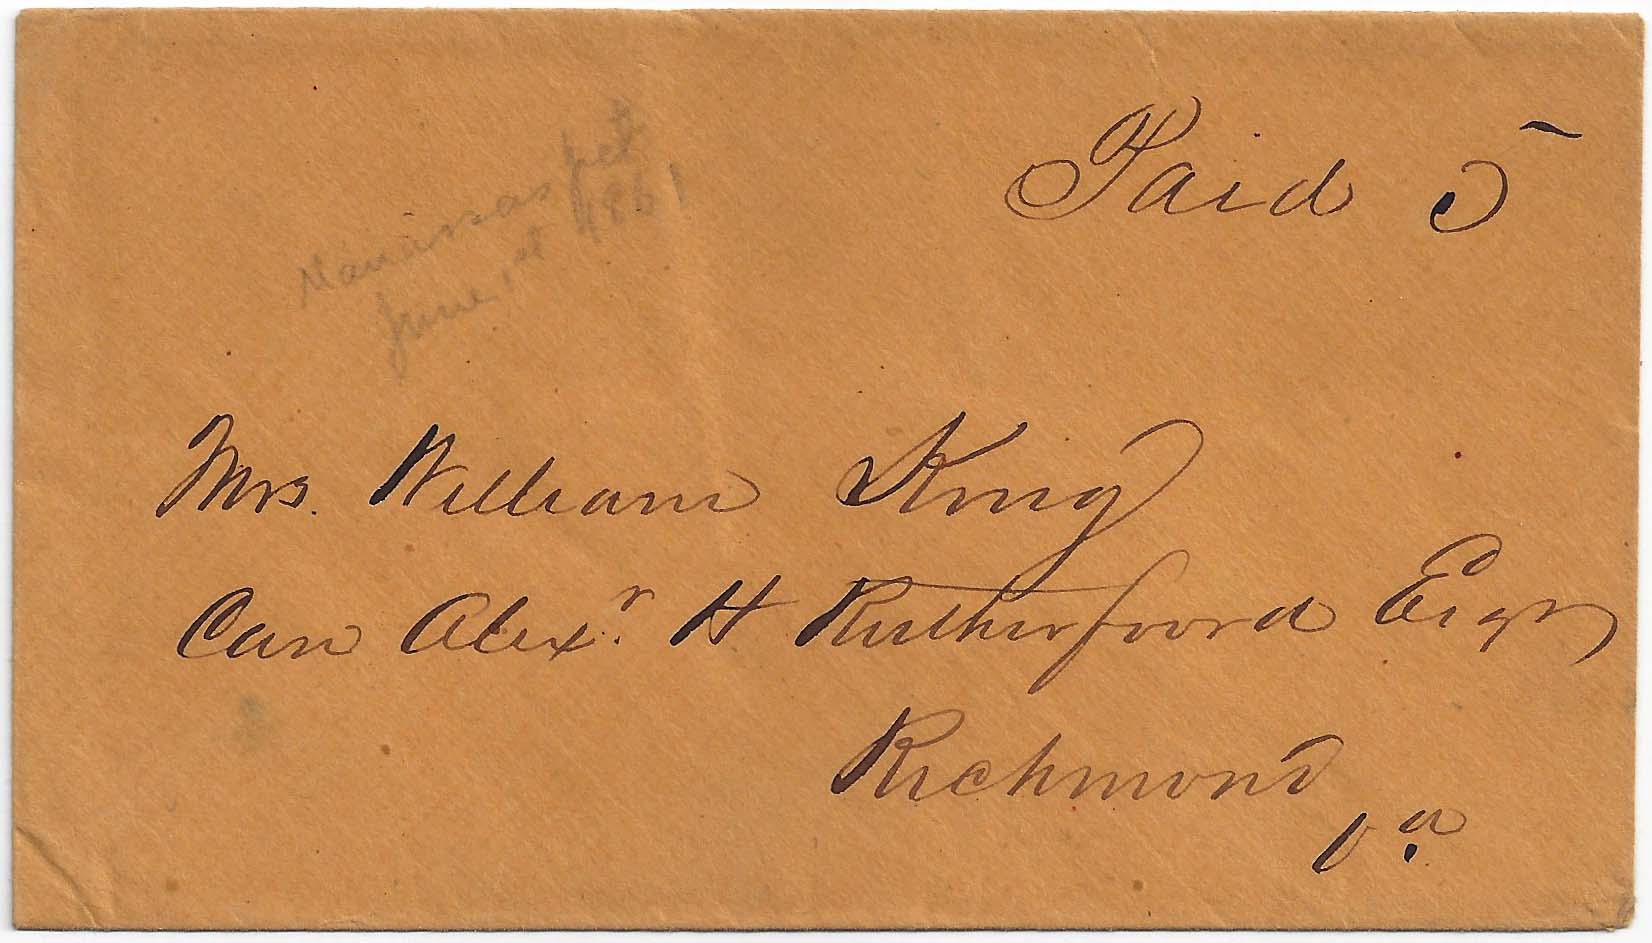 Paid 5
Manassas Jct
June 1st 1861
Mrs. William King
Care Alexr. H Rutherfoord Esqr
Richmond
Va